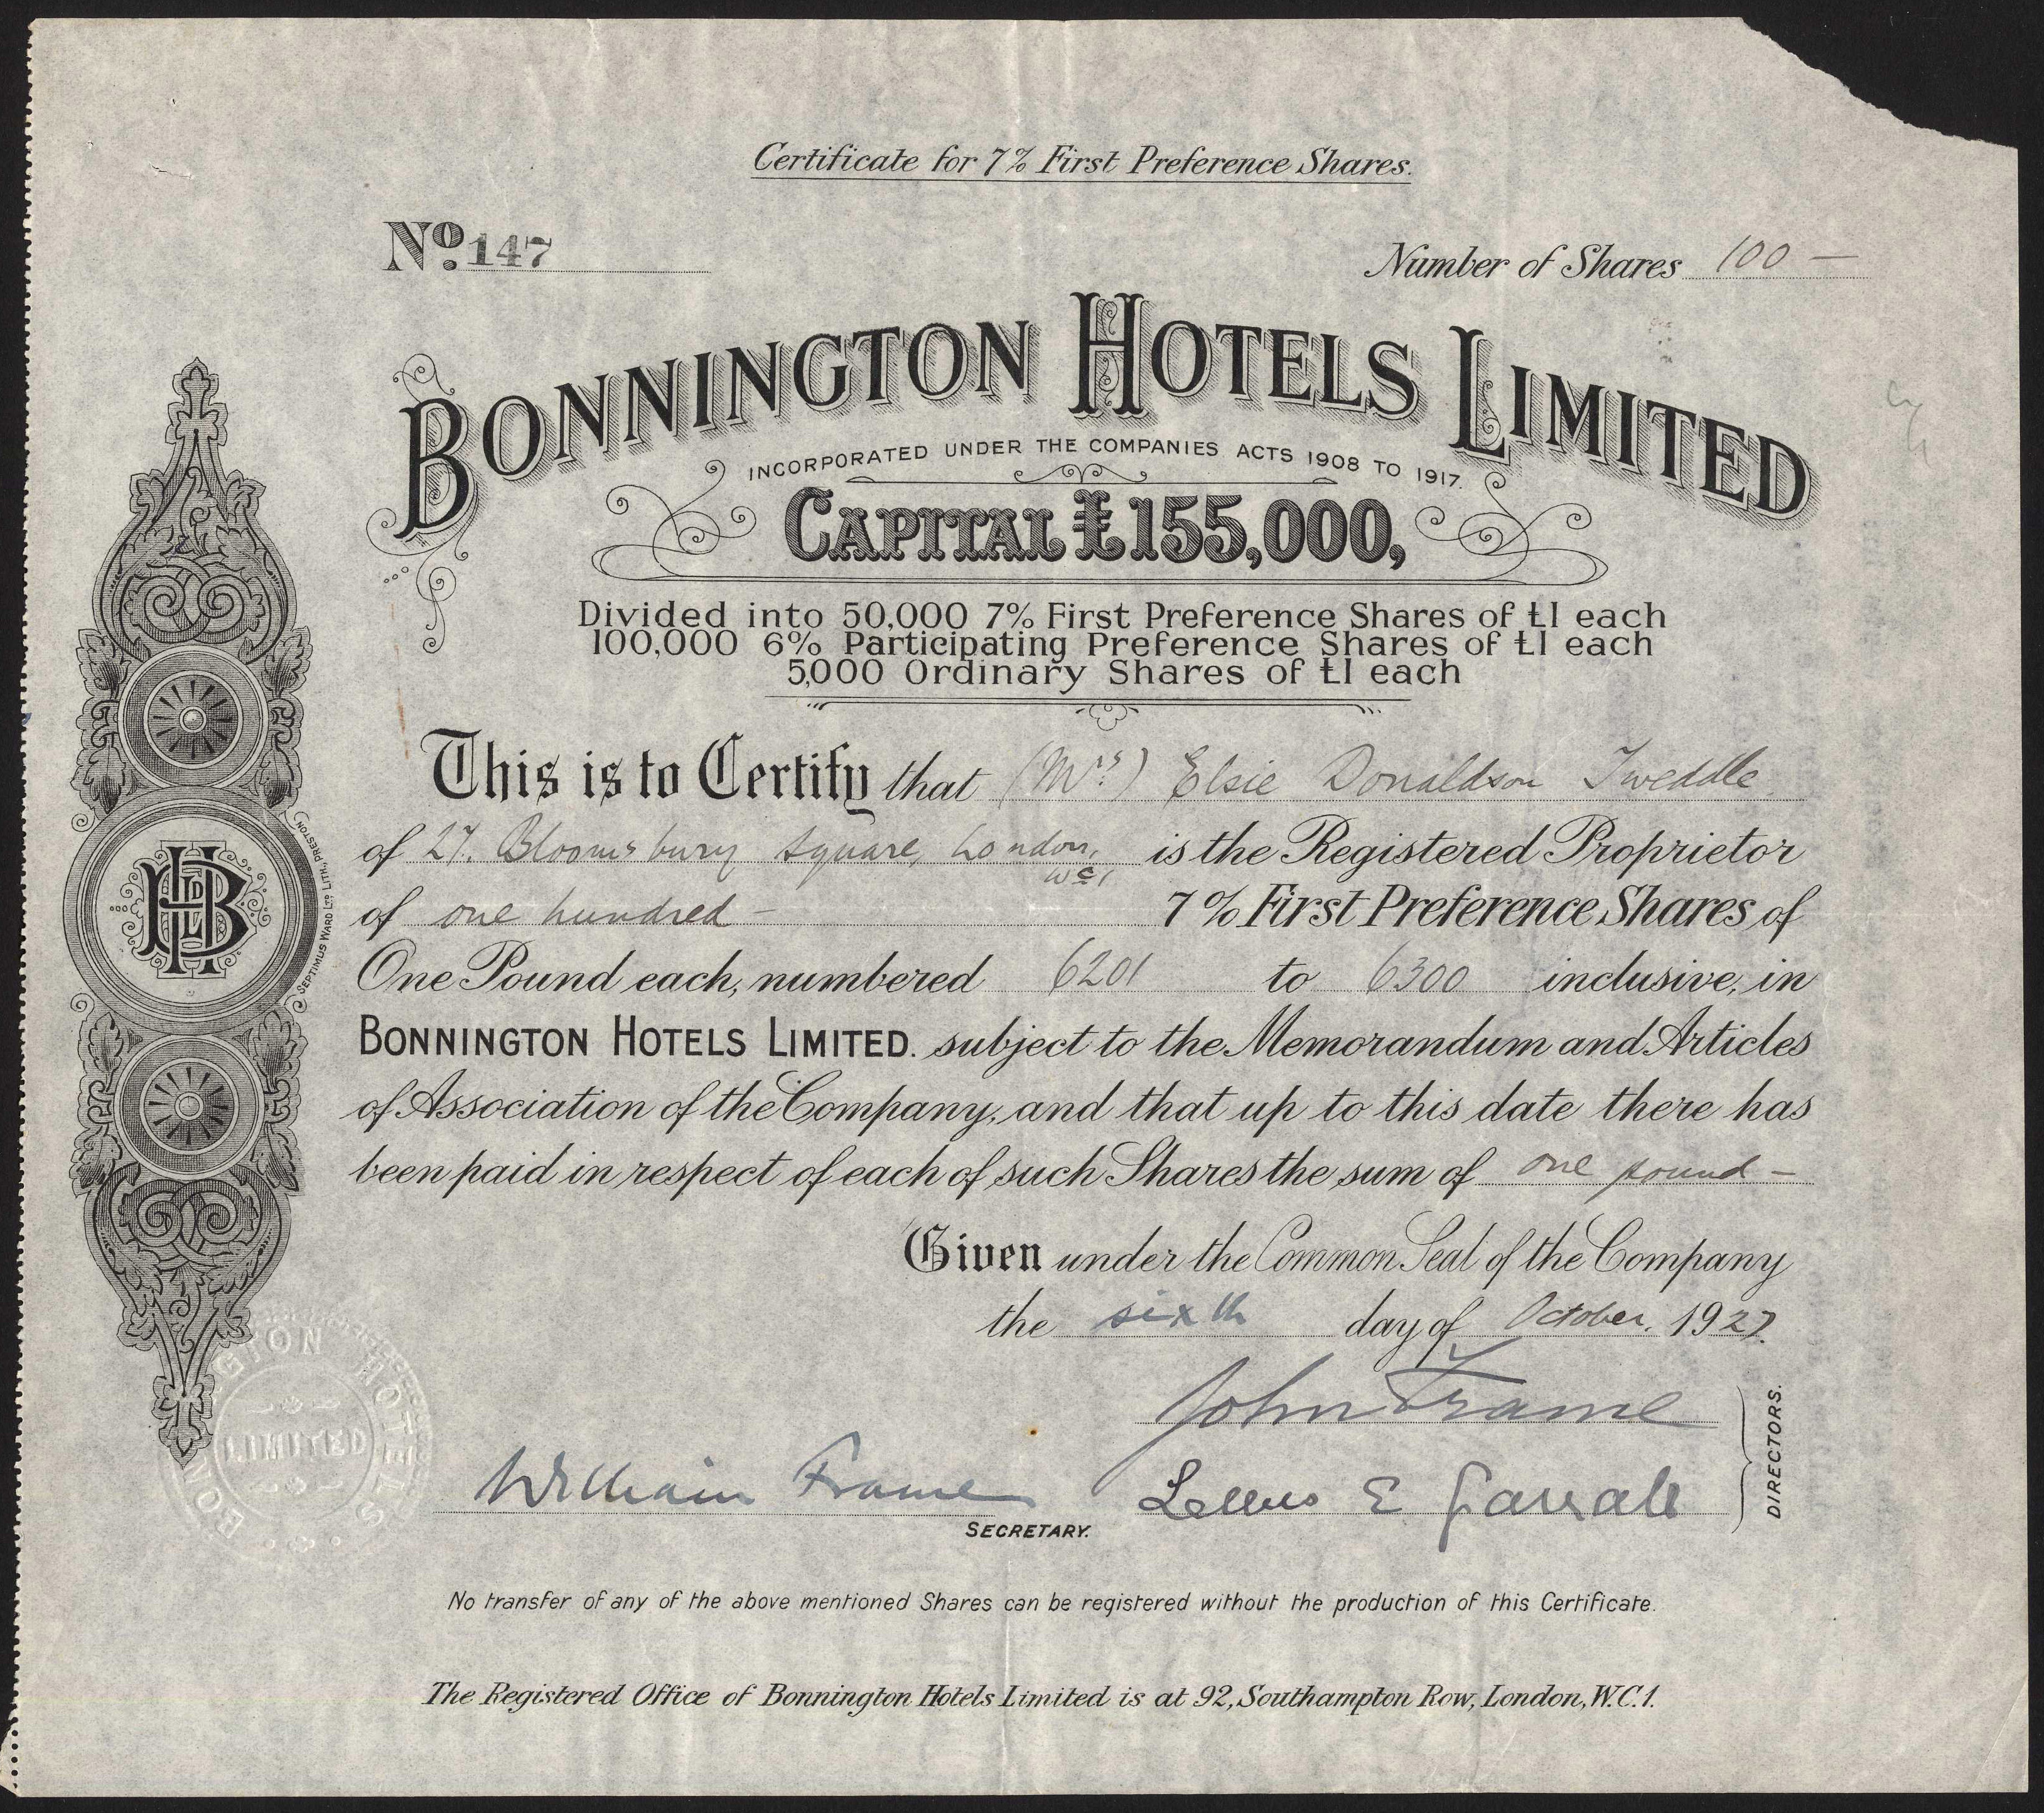 Certificate for 7% First Preference Shares.
No. 147
Number of Shares 100 —
BONNINGTON HOTELS LIMITED
INCORPORATED UNDER THE COMPANIES ACTS 1908 TO 1917.
CAPITAL £155,000,
Divided into 50,000 7% First Preference Shares of £1 each
100,000 6% Participating Preference Shares of £1 each
5,000 Ordinary Shares of £1 each
This is to Certify that (Mrs.) Elsie Donaldson Tweddle
of 27. Bloomsbury Square, London, is the Registered Proprietor
WC1
of one hundred — 7% First Preference Shares of
One Pound each, numbered 6201 to 6300 inclusive, in
BONNINGTON HOTELS LIMITED. subject to the Memorandum and Articles
of Association of the Company, and that up to this date there has
been paid in respect of each of such Shares the sum of one pound —
Given under the Common Seal of the Company
the sixth day of October, 1927.
John Frame
William Frame
SECRETARY.
E
DIRECTORS.
No transfer of any of the above mentioned Shares can be registered without the production of this Certificate.
The Registered Office of Bonnington Hotels Limited is at 92, Southampton Row, London, W.C.1.
BHLLD
SEPTIMUS WARD LTD LITH., PRESTON
BONNINGTON HOTELS
LIMITED